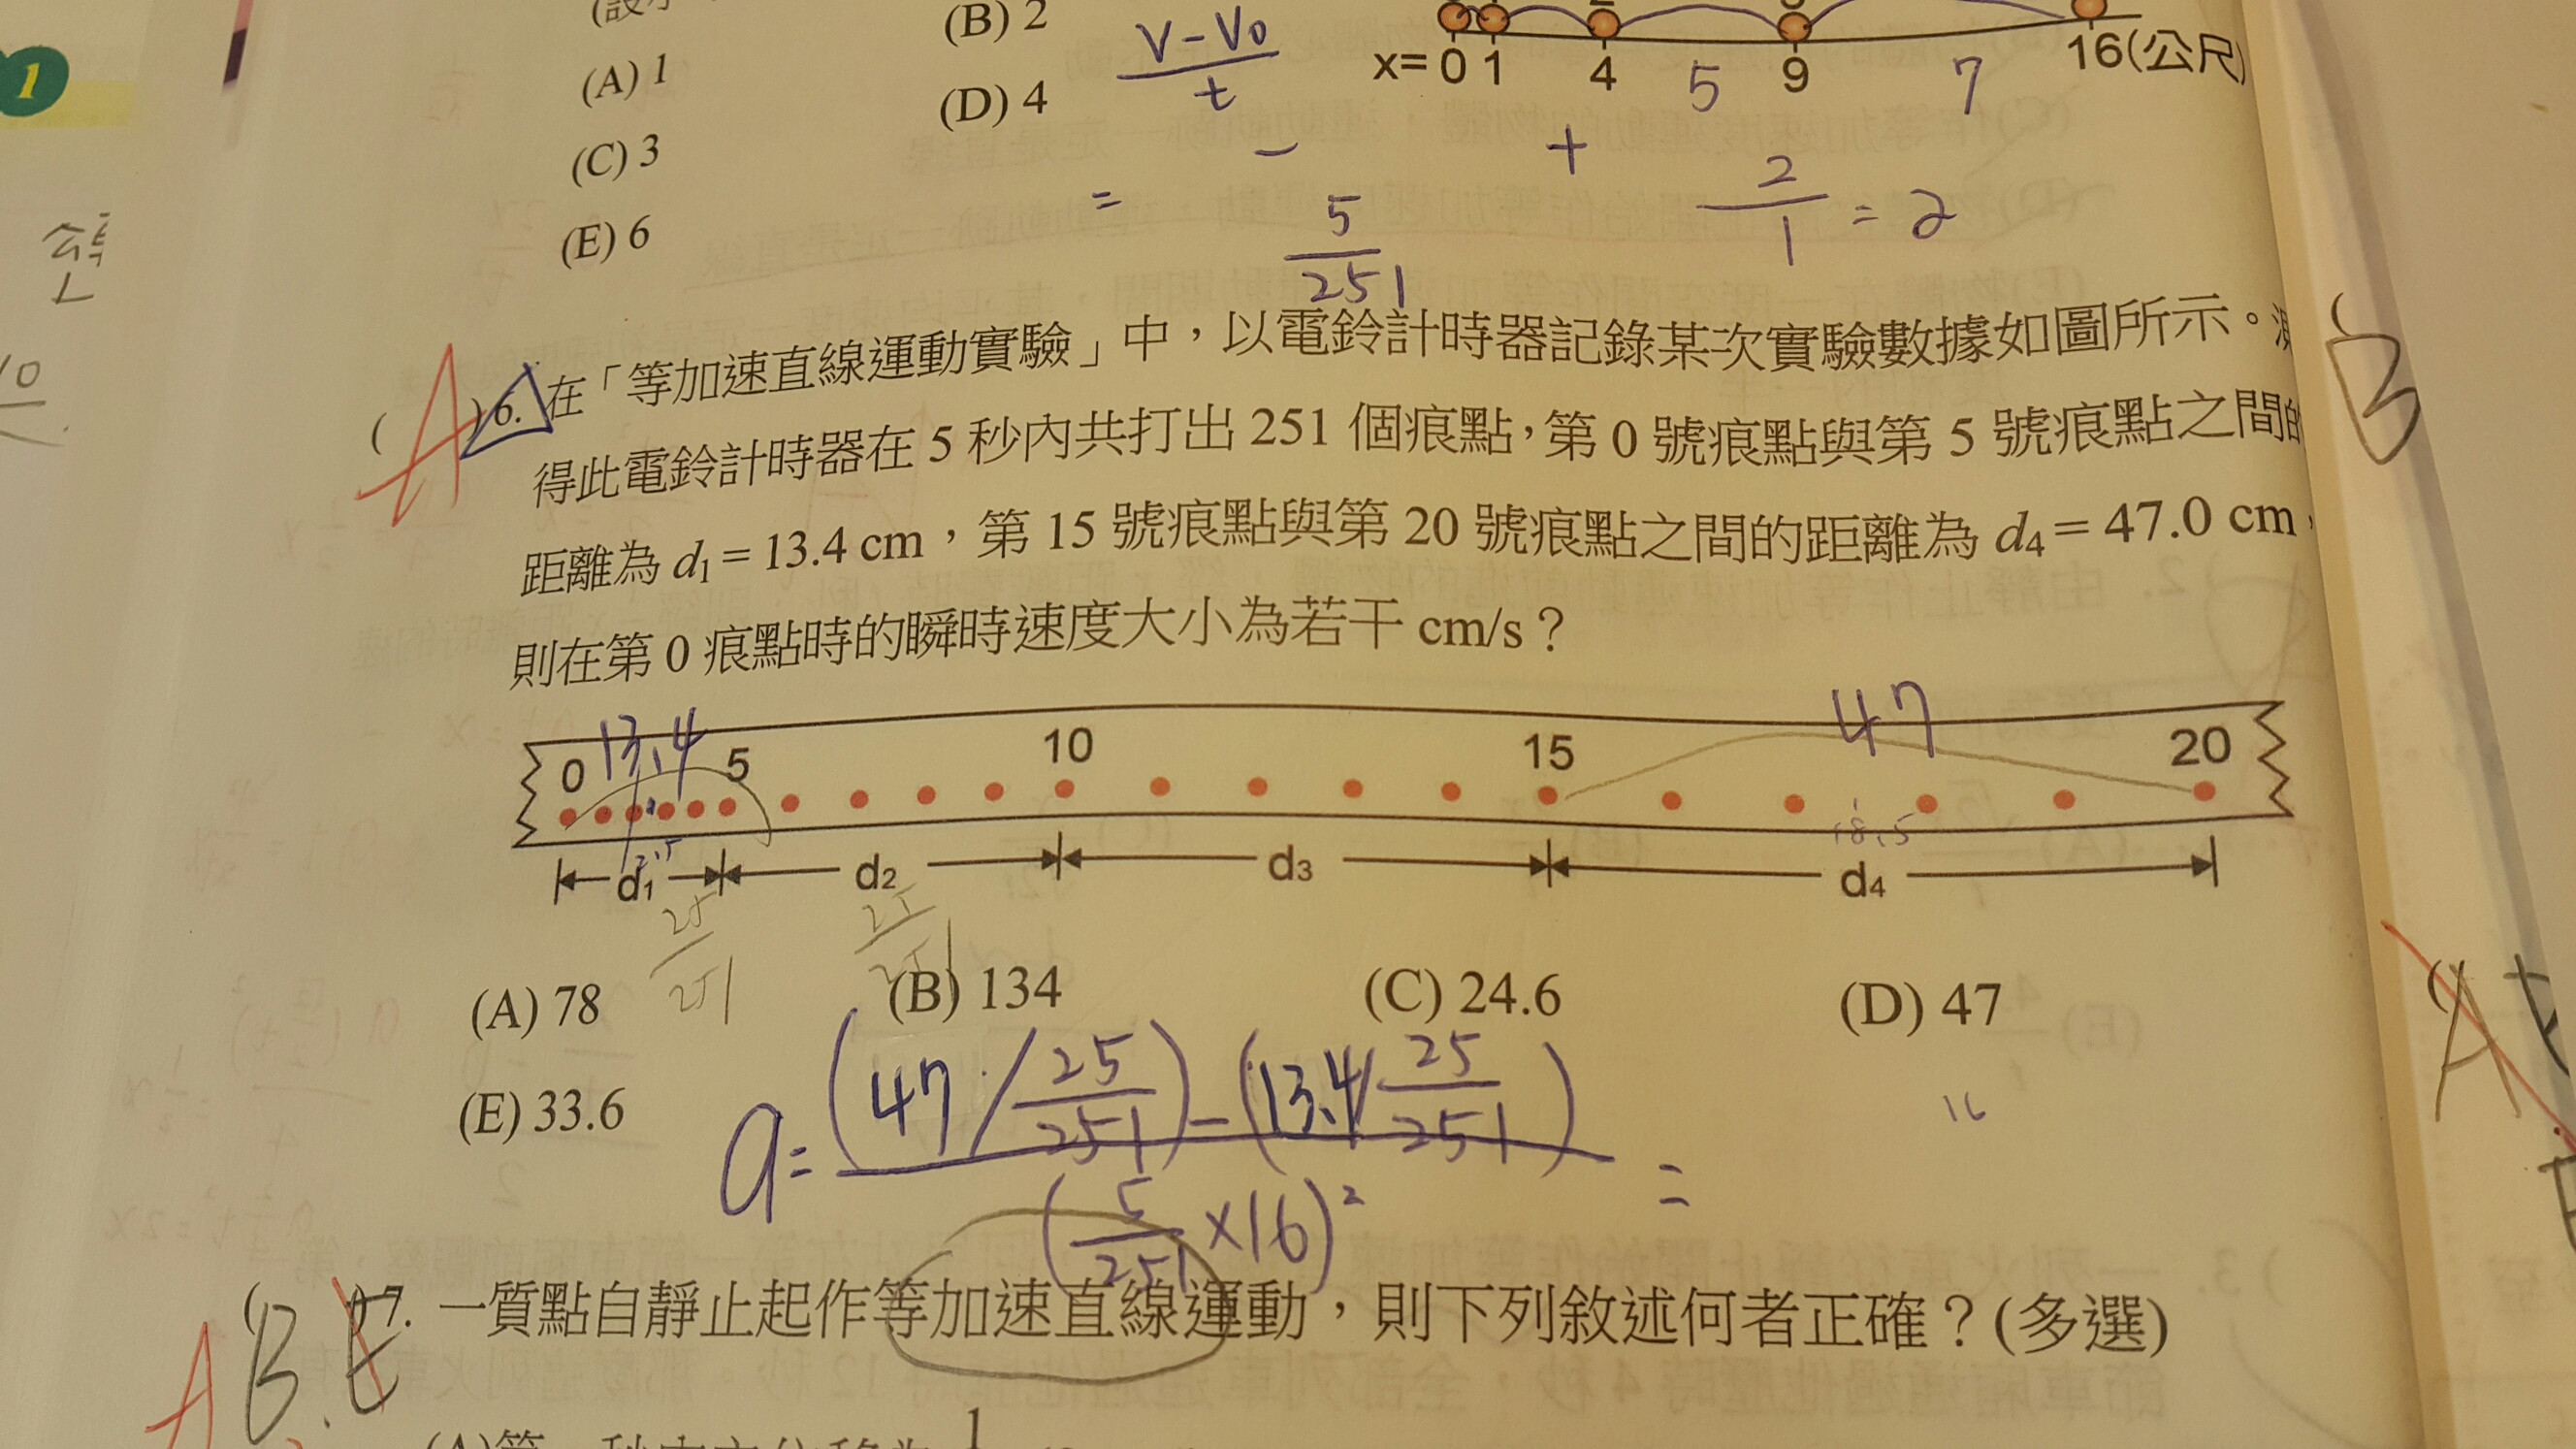 1
(B) 2
(A) 1
(D) 4
(C) 3
(E) 6
x= 0 1 4 9 16(公尺)
5 7
V-V0
t
= - +
5
251
2
1
= 2
A
( )6. 在「等加速直線運動實驗」中,以電鈴計時器記錄某次實驗數據如圖所示。
得此電鈴計時器在 5 秒內共打出 251 個痕點,第 0 號痕點與第 5 號痕點之間的
距離為 d1 = 13.4 cm,第 15 號痕點與第 20 號痕點之間的距離為 d4 = 47.0 cm,
則在第 0 痕點時的瞬時速度大小為若干 cm/s?
13.4 47
0 5 10 15 20
18.5
d1 d2 d3 d4
(A) 78 (B) 134 (C) 24.6 (D) 47
(E) 33.6
a= (47/25/251)-(13.4/25/251)
(5/251×16)² =
16
B
A B E
( )7. 一質點自靜止起作等加速直線運動,則下列敘述何者正確?(多選)